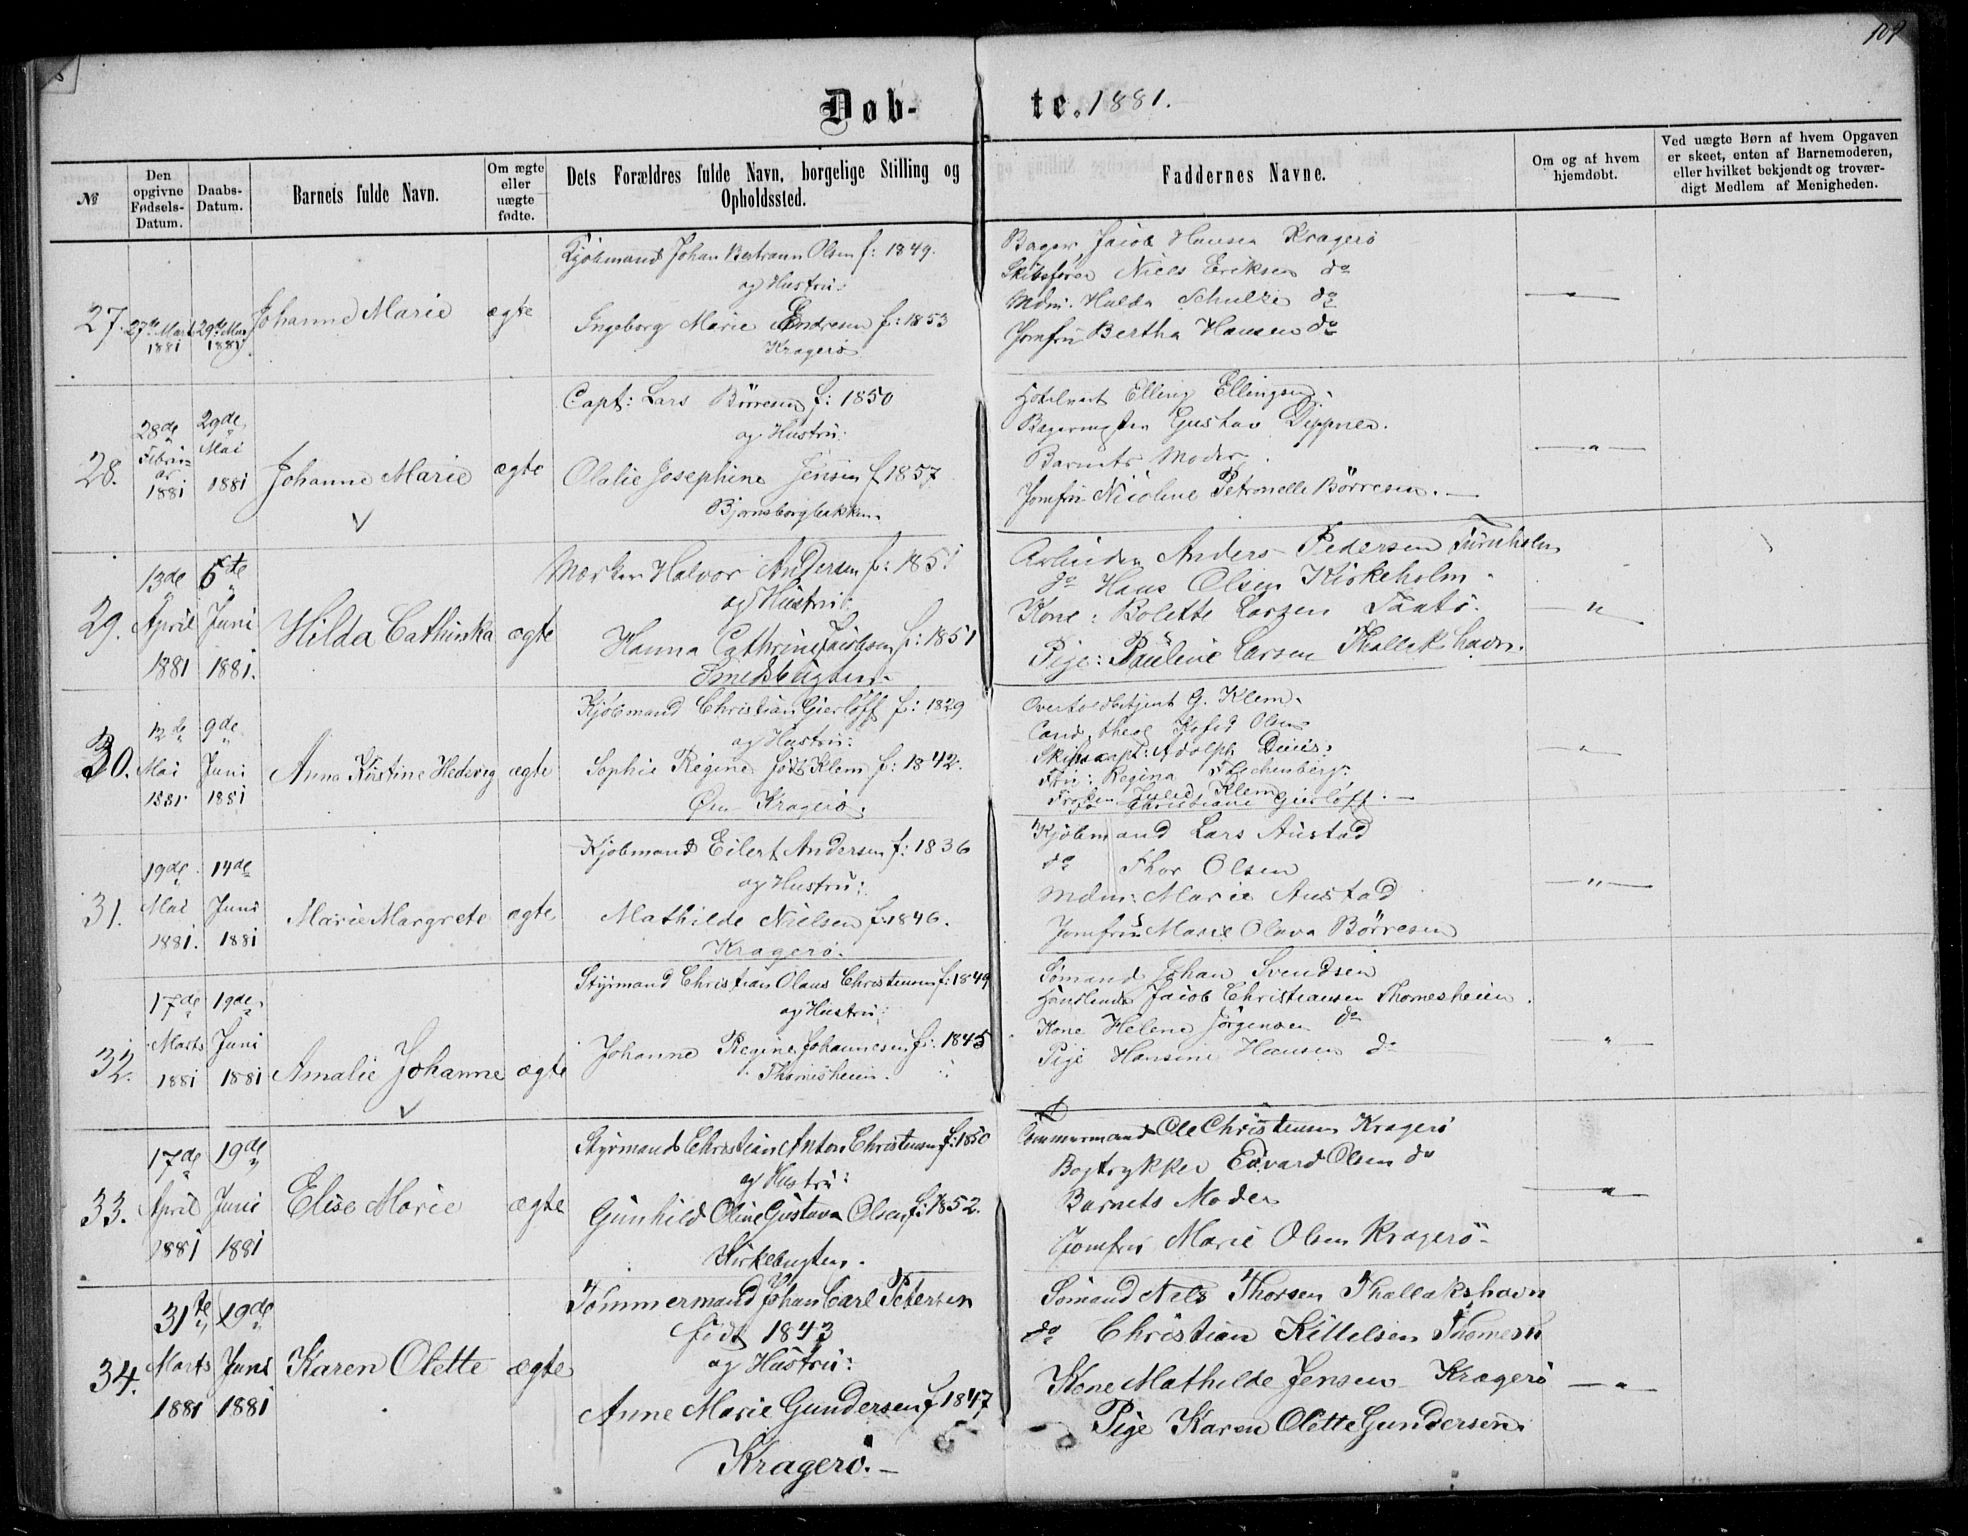 109
Døb- te. 1881.
№
Den opgivne Fødsels-Datum.
Daabs-Datum.
Barnets fulde Navn.
Om ægte eller uægte fødte.
Dets Forældres fulde Navn, borgelige Stilling og Opholdssted.
Faddernes Navne.
Om og af hvem hjemdøbt.
Ved uægte Børn af hvem Opgaven er skeet, enten af Barnemoderen, eller hvilket bekjendt og troværdigt Medlem af Menigheden.
27.
27de Marts 1881
29de Mai 1881
Johanne Marie
ægte
Kjöbmand Johan Bertrann Olsen f: 1849.
og Hustru:
Ingeborg Marie Endresen f: 1853
Kragerö
Bager Jacob Hansen Kragerö
Skibsförer Niels Eriksen do
Mdm: Hulda Schulze do
Jomfru Bertha Hansen do
— " —
28.
28de Februar 1881
29de Mai 1881
Johanne Marie
ægte
Capt: Lars Börresen f: 1850
og Hustru:
Olalie Josephine Jensen f 1857
Bjornsborgbakken.
Hotelvert Elling Ellingsen.
Bagermester Gustav Dippner.
Barnets Moder.
Jomfru Nicoline Petronelle Börresen. —
— " —
29.
13de April 1881
5te Juni 1881.
Hilda Cathinka
ægte
Mærker Halvor Andersen f: 1851
og Hustru:
Hanna Cathrine Jacobsen f: 1851
Smedsbugten.
Arbeider Anders Pedersen Furuholm
do Hans Olsen Kirkeholm.
Kone: Bolette Larsen Taatö.
Pige: Pauline Larsen Thallakshavn.
— " —
30.
12de Mai 1881
9de Juni 1881
Anna Kirstine Hedevig
ægte
Kjöbmand Christian Gierlöff f: 1829
og Hustru:
Sophie Regine född Klem f: 1842.
Öen Kragerö.
Overtoldbetjent G. Klem.
Cand. theol Kofod Olsen
Skibscapt: Adolph
Fru: Regina
Fröken Klem
Christiane Gierlöff. —
— " —
31.
19de Mai 1881.
14de Juni 1881
Marie Margrete
ægte
Kjöbmand Eilert Andersen f: 1836
og Hustru:
Mathilde Nielsen f: 1846.
Kragerö.
Kjöbmand Lars Austad
do Thor Olsen
Mdm: Marie Austad
Jomfru Marie Olava Börresen
— " —
32.
17de Marts 1881
19de Juni 1881
Amalie Johanne
ægte
Styrmand Christian Olaus Christensen f: 1849
og Hustru:
Johanne Regine Johannesen f: 1845
Thomesheien.
Sömand Johan Svendsen
Handlende Jacob Christiansen Thomesheien.
Kone Helene Jörgensen do
Pige Hansine Hansen do
— " —
33.
17de April 1881
19de Juni 1881
Elise Marie
ægte
Styrmand Christian Anton Christensen f: 1850
og Hustru:
Gunhild Oline Gustava Olsen f: 1852.
Kirkebugten.
Tömmermand Ole Christensen Kragerö
Bogtrykker Edvard Olsen do
Barnets Moder
Jomfru Marie Olsen Kragerö
— " —
34.
31te Marts 1881
19de Juni 1881
Karen Olette
ægte
Tömmermand Johan Carl Petersen
född 1843
og Hustru:
Anne Marie Gundersen f 1847
Kragerö. —
Sömand Nels Thorsen Thallakshavn
do Christian Kittelsen Thomesh
Kone Mathilde Jensen Kragerö
Pige Karen Olette Gundersen.
— " —